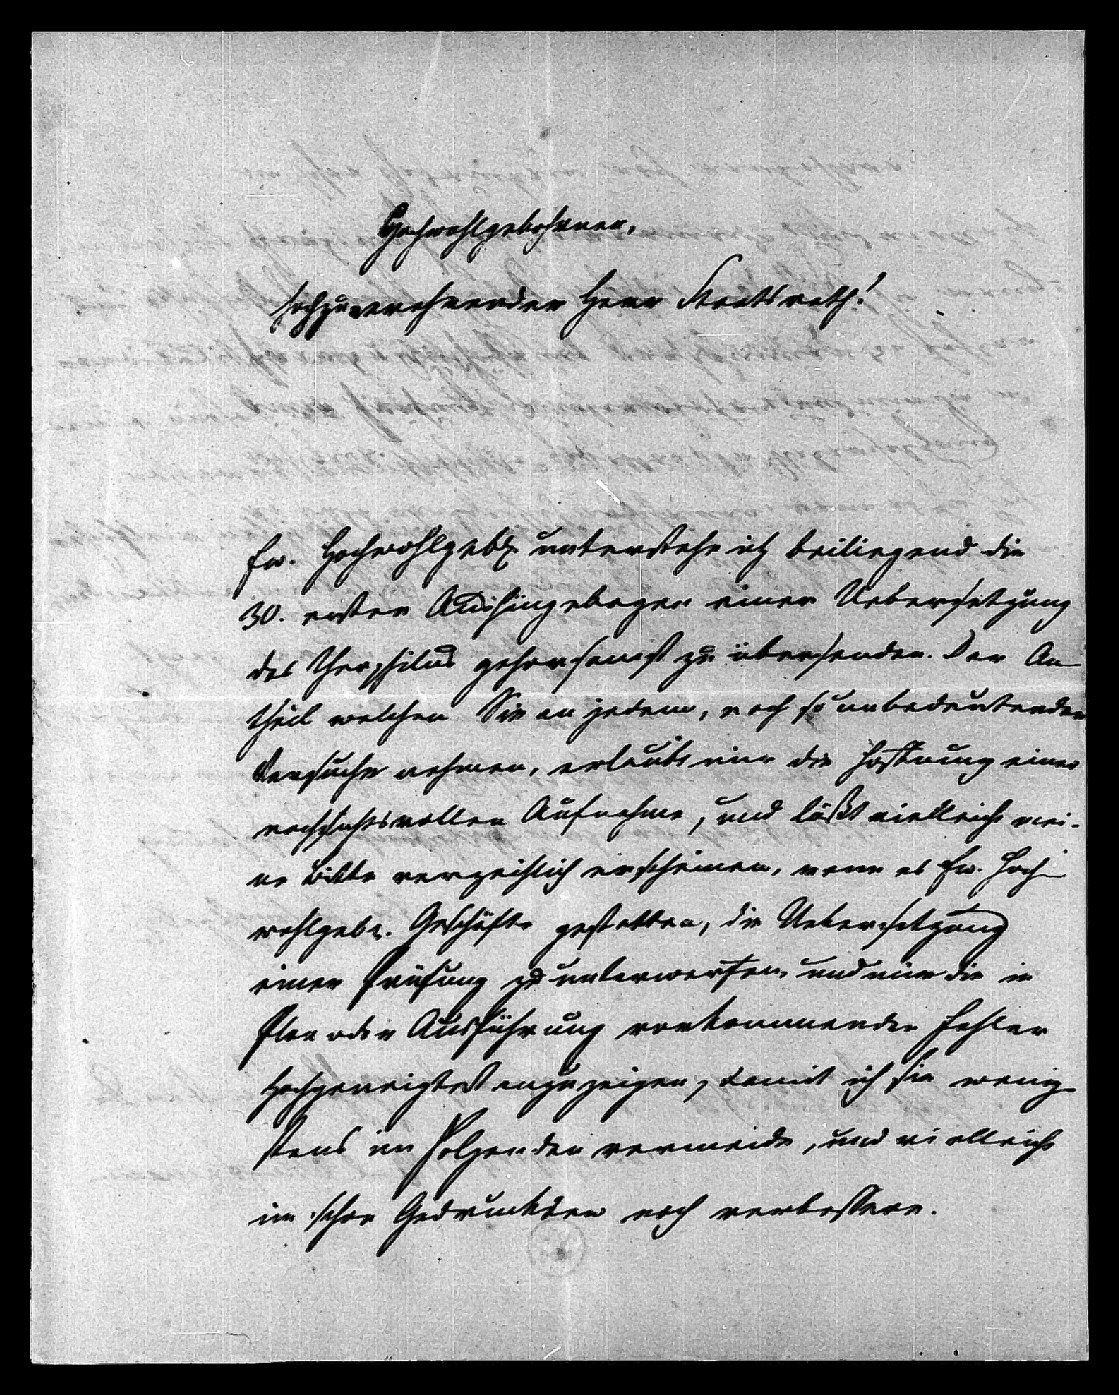 Hochwohlgebohrner,
hochzuverehrender Herr Staatsrath!
Ew. Hochwohlgeb. unterstehe ich beiliegend die
30. ersten Aushängebogen einer Uebersetzung
des Theophilus gehorsamst zu übersenden. Der An-
theil welchen Sie an jedem, noch so unbedeutenden
Versuche nehmen, erlaubt mir die Hoffnung einer
nachsichtsvollen Aufnahme, und läßt vielleicht mei-
ne Bitte verzeihlich erscheinen, wenn es Ew. Hoch-
wohlgeb. Geschäfte gestatten, die Uebersetzung
einer Prüfung zu unterwerfen, und mir die in
Plan oder Ausführung vorkommenden Fehler
hochgeneigtest anzuzeigen, damit ich sie wenig-
stens im Folgenden vermeide, und vielleicht
im schon Gedruckten noch verbessere.